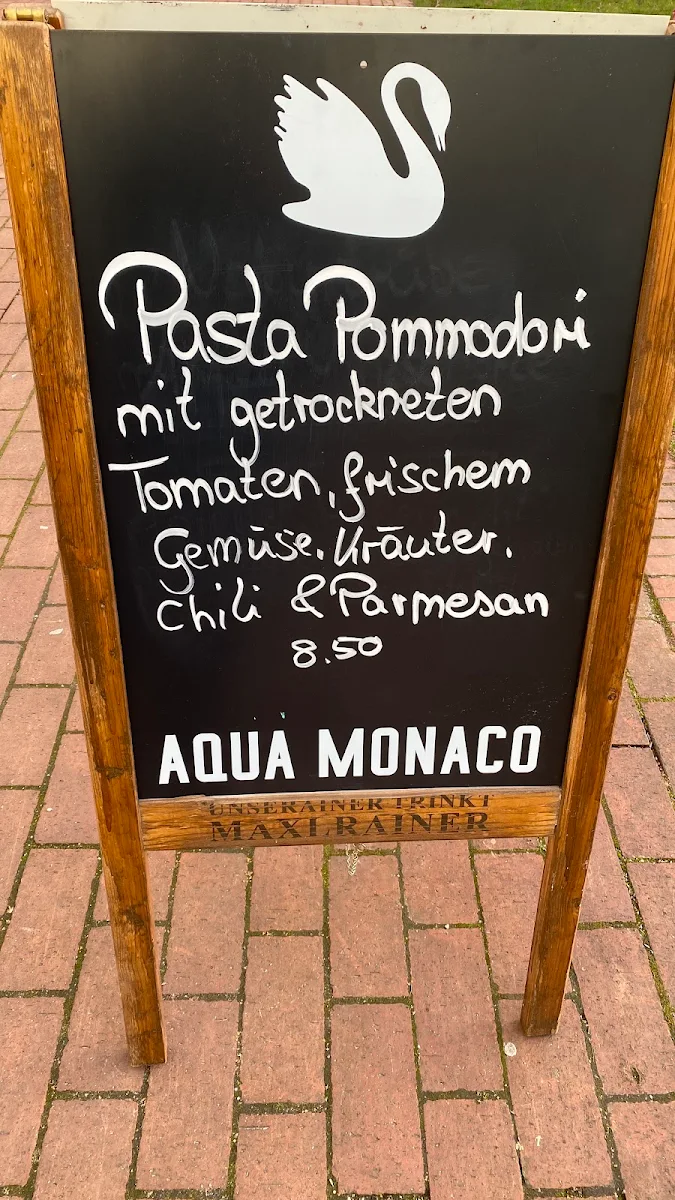 Pasta Pommodori
mit getrockneten
Tomaten, frischem
Gemüse, Kräuter,
Chili & Parmesan
8.50
AQUA MONACO
UNSERAINER TRINKT
MAXLRAINER